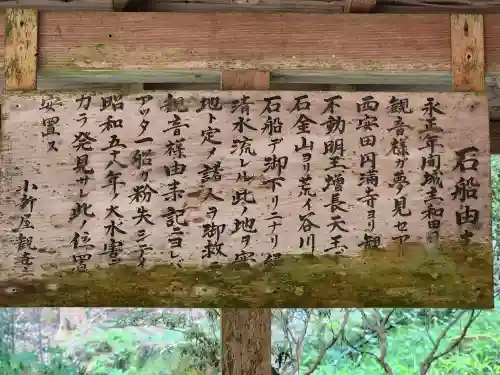 石船由来
永正年間城主和田
観音様ガ夢見セア
西安田円満寺ヨリ観
不動明王増長天王
石金山ヨリ荒イ谷川
石船デ御下リニナリ
清水流レル此ノ地ヲ
地ト定メ諸人ヲ御救
観音様由来記ニヨレバ
アツタ一船ガ粉失シテイ
昭和五十八年ノ大水害
ガラ発見サレ此ノ位置
安置ス
小新屋観音